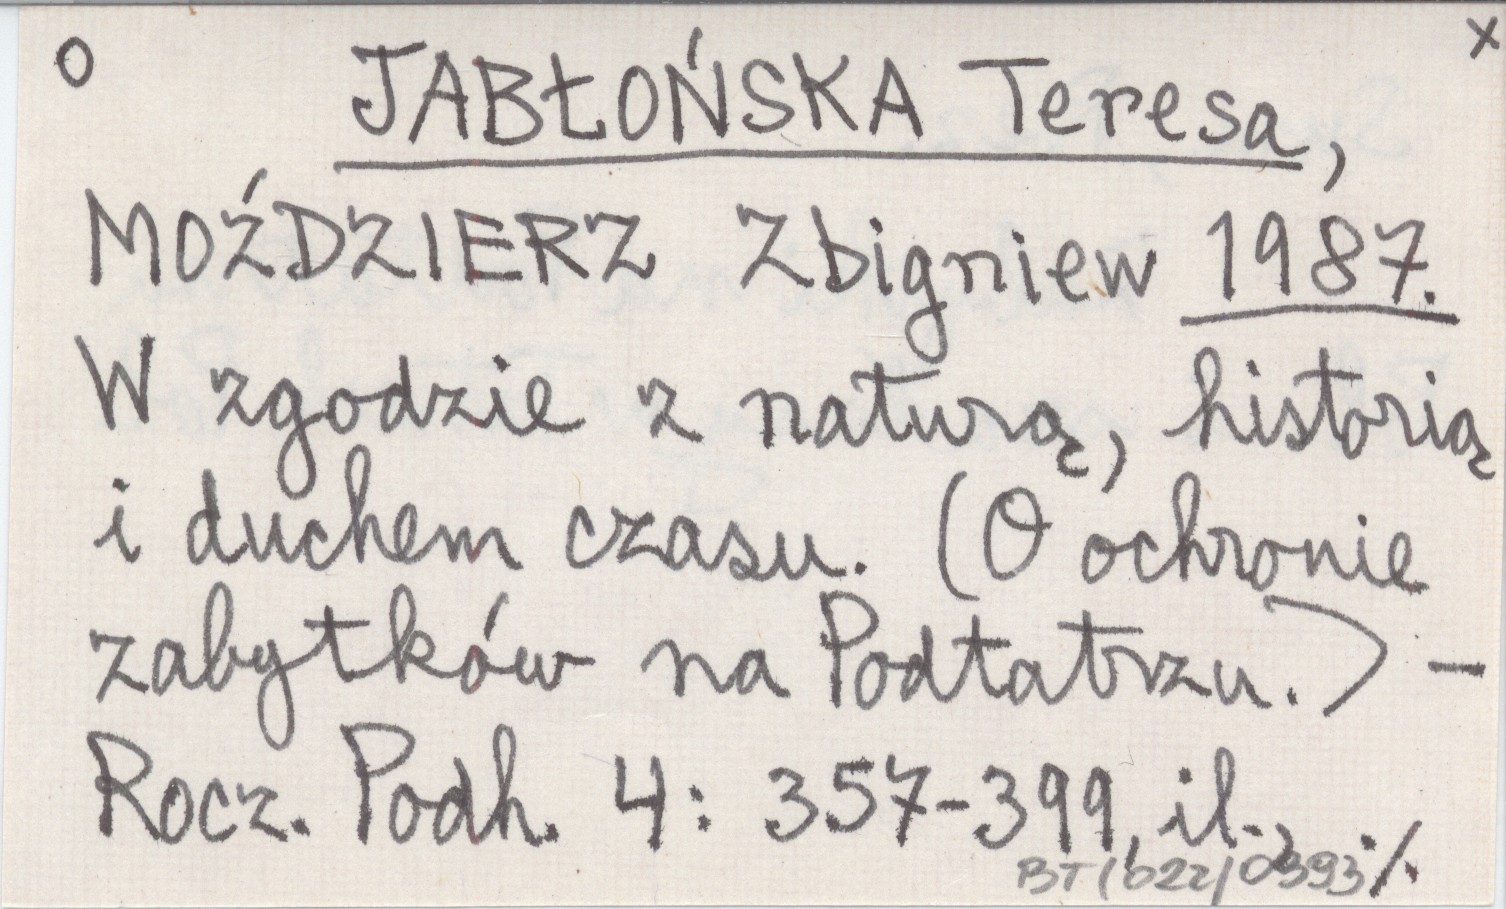 O JABŁOŃSKA Teresa, x
MOŹDZIERZ Zbigniew 1987.
W zgodzie z naturą, historią
i duchem czasu. (O ochronie
zabytków na Podtatrzu.) –
Rocz. Podh. 4: 357-399, il., ./.
BT (b22) 0393